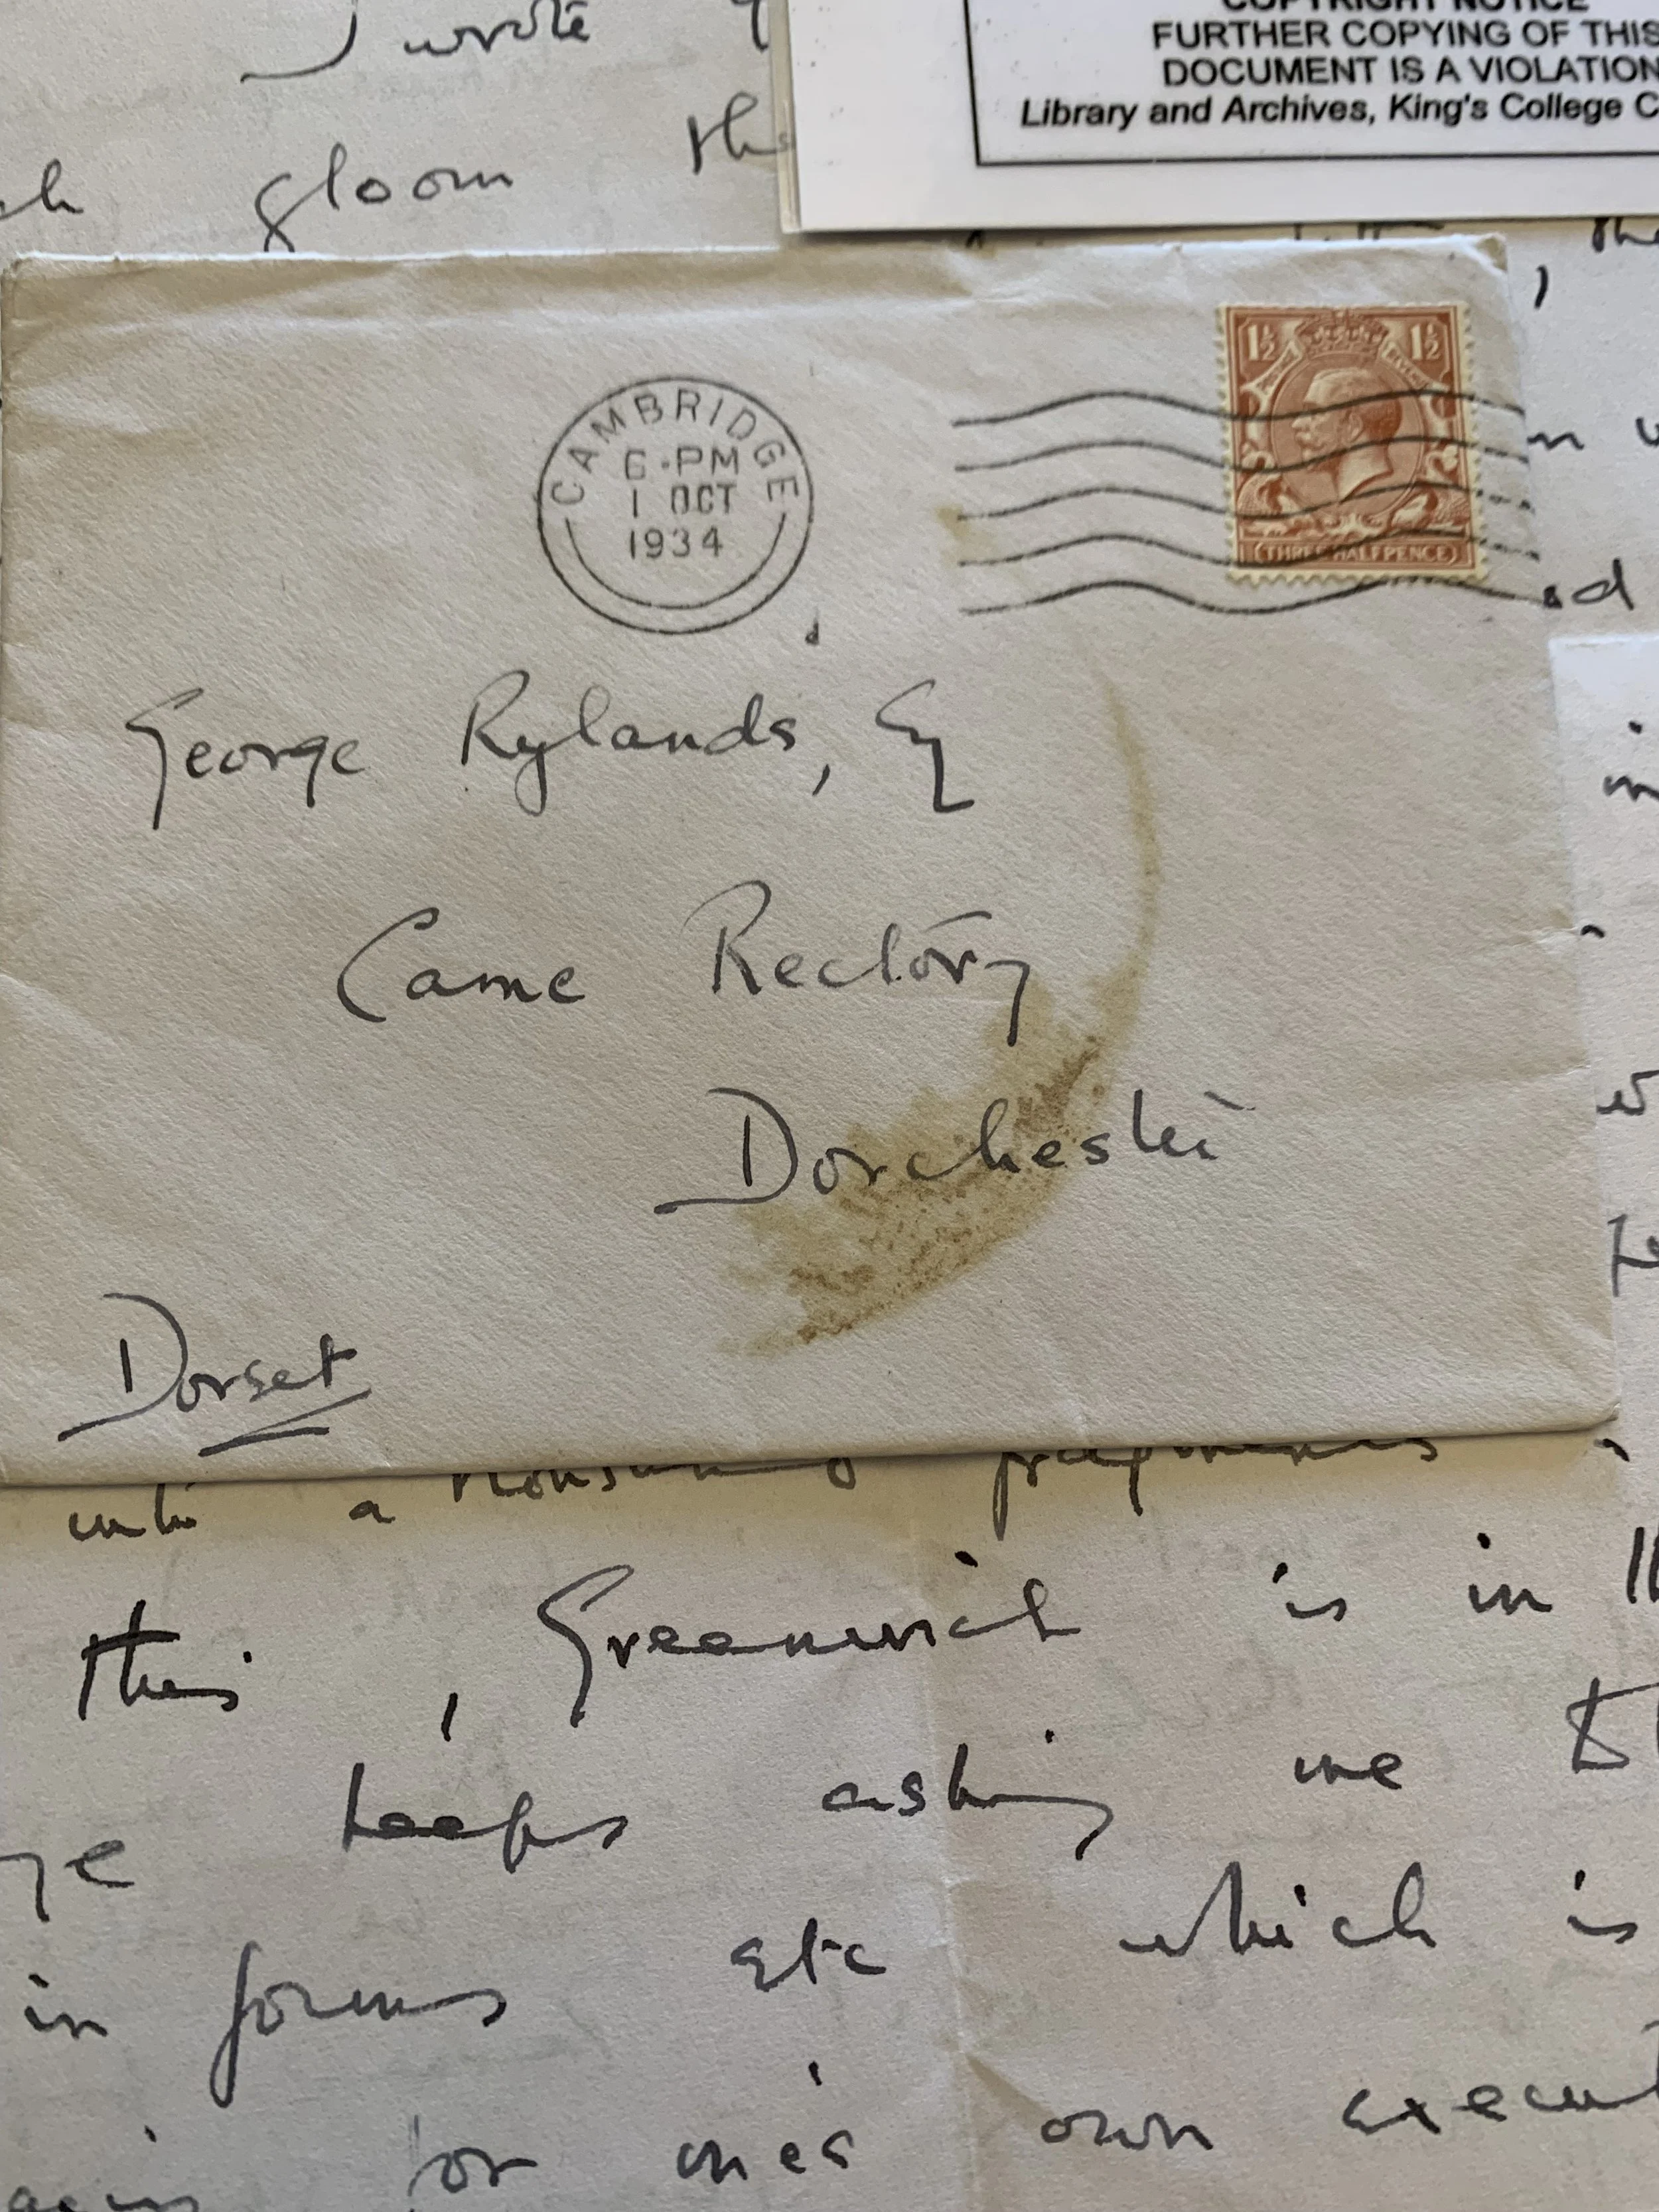 I wrote
gloom this
COPYRIGHT NOTICE
FURTHER COPYING OF THIS
DOCUMENT IS A VIOLATION
Library and Archives, King's College C
CAMBRIDGE
6·PM
1 OCT
1934
1½ 1½
THREE HALFPENCE
George Rylands, Esq
Came Rectory
Dorchester
Dorset
into a fragments
this, Greenwich is in
keeps asking me to
in forms etc which is
for one's own execut